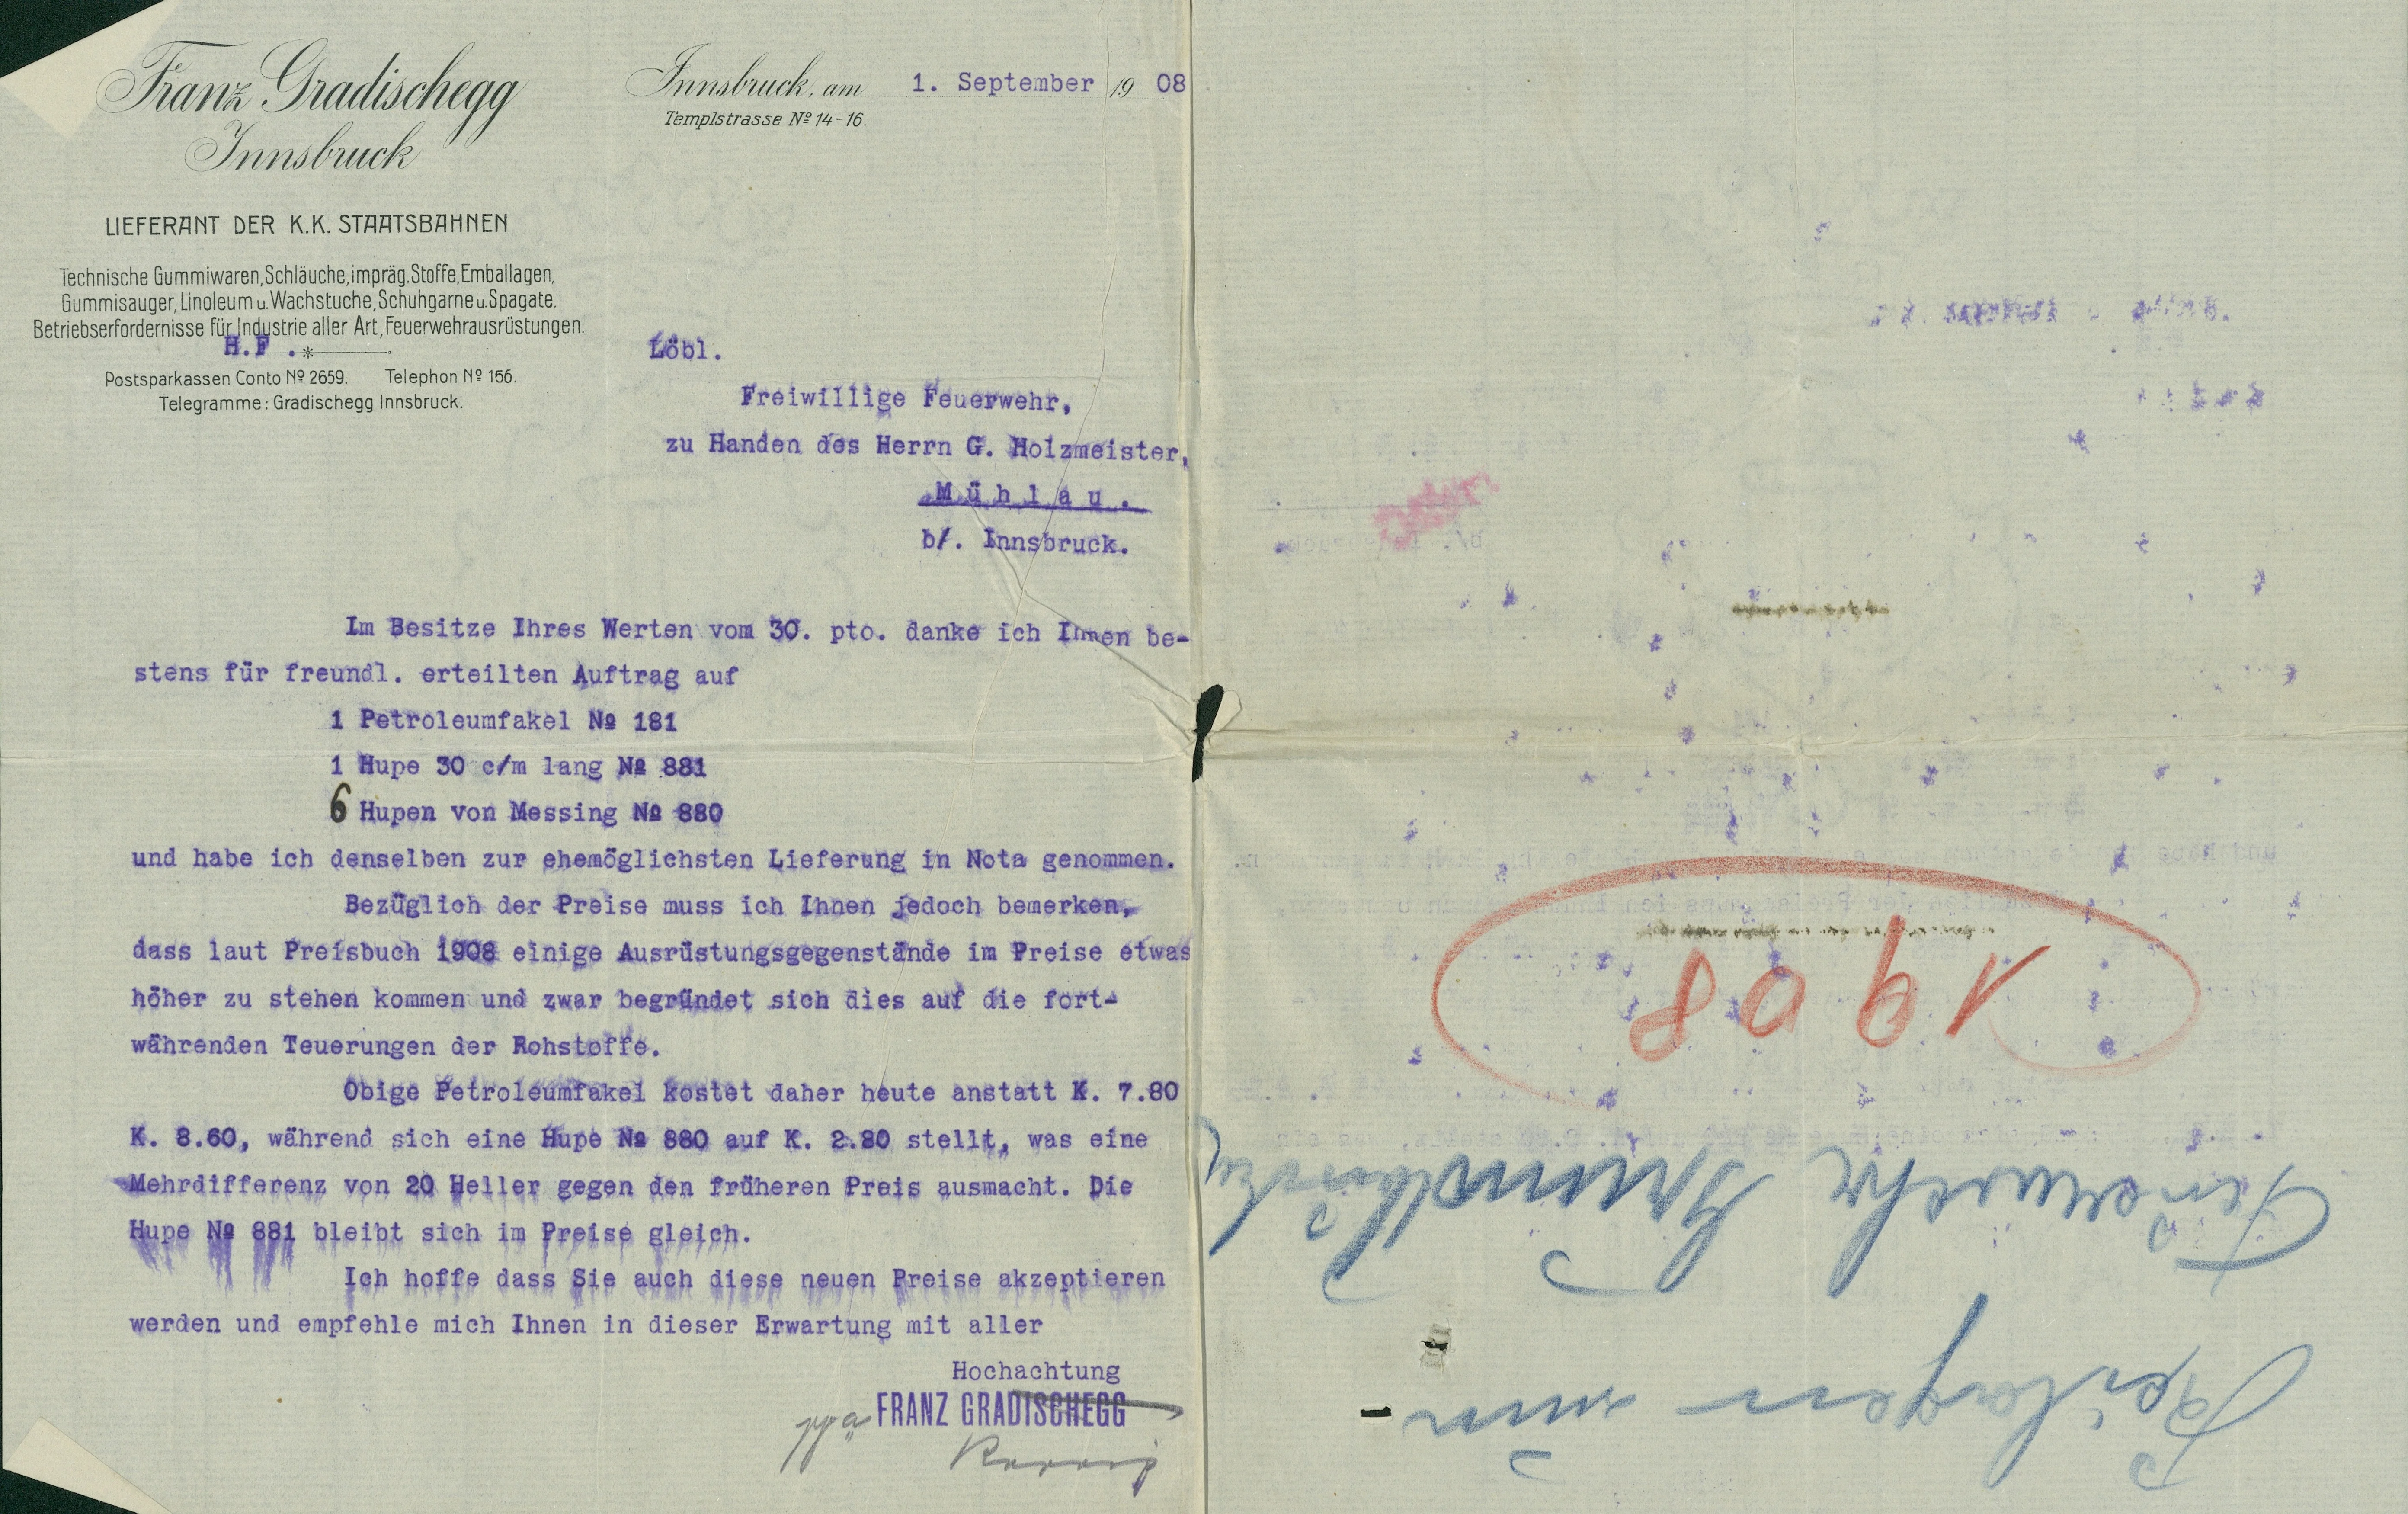 Franz Gradischegg
Innsbruck
LIEFERANT DER K.K. STAATSBAHNEN
Technische Gummiwaren, Schläuche, impräg. Stoffe, Emballagen,
Gummisauger, Linoleum u. Wachstuche, Schuhgarne u. Spagate.
Betriebserfordernisse für Industrie aller Art, Feuerwehrausrüstungen.
H.F.
Postsparkassen Conto Nº 2659. Telephon Nº 156.
Telegramme: Gradischegg Innsbruck.
Innsbruck, am 1. September 1908
Templstrasse Nº 14-16.
Löbl.
Freiwillige Feuerwehr,
zu Handen des Herrn G. Holzmeister,
Mühlau.
b/. Innsbruck.
Im Besitze Ihres Werten vom 30. pto. danke ich Ihnen be-
stens für freundl. erteilten Auftrag auf
1 Petroleumfakel Nº 181
1 Hupe 30 c/m lang Nº 881
6 Hupen von Messing Nº 880
und habe ich denselben zur ehemöglichsten Lieferung in Nota genommen.
Bezüglich der Preise muss ich Ihnen jedoch bemerken,
dass laut Preisbuch 1908 einige Ausrüstungsgegenstände im Preise etwas
höher zu stehen kommen und zwar begründet sich dies auf die fort-
währenden Teuerungen der Rohstoffe.
Obige Petroleumfakel kostet daher heute anstatt K. 7.80
K. 8.60, während sich eine Hupe Nº 880 auf K. 2.80 stellt, was eine
Mehrdifferenz von 20 Heller gegen den früheren Preis ausmacht. Die
Hupe Nº 881 bleibt sich im Preise gleich.
Ich hoffe dass Sie auch diese neuen Preise akzeptieren
werden und empfehle mich Ihnen in dieser Erwartung mit aller
Hochachtung
ppa FRANZ GRADISCHEGG
Beilagen zum
Feuerwehr Grundbuch
1908